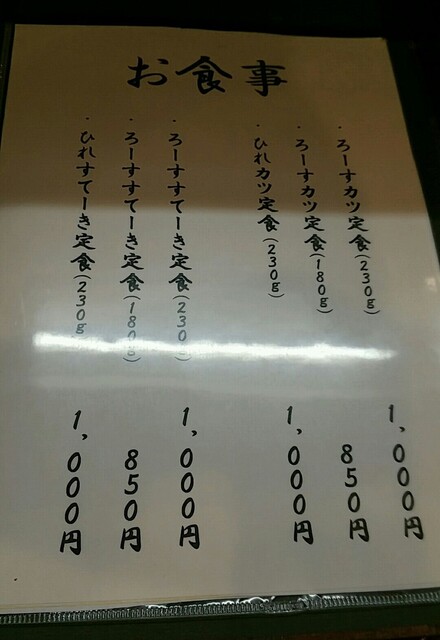 お食事
・ろーすカツ定食(230g) 1,000円
・ろーすカツ定食(180g) 850円
・ひれカツ定食(230g) 1,000円
・ろーすすてーき定食(230g) 1,000円
・ろーすすてーき定食(180g) 850円
・ひれすてーき定食(230g) 1,000円